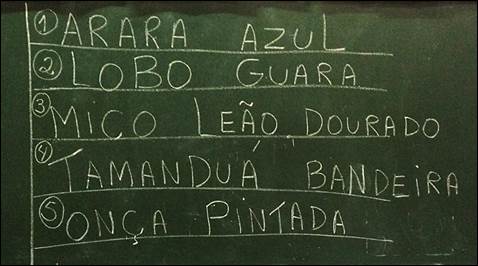 ① ARARA AZUL
② LOBO GUARA
③ MICO LEÃO DOURADO
④ TAMANDUÁ BANDEIRA
⑤ ONÇA PINTADA